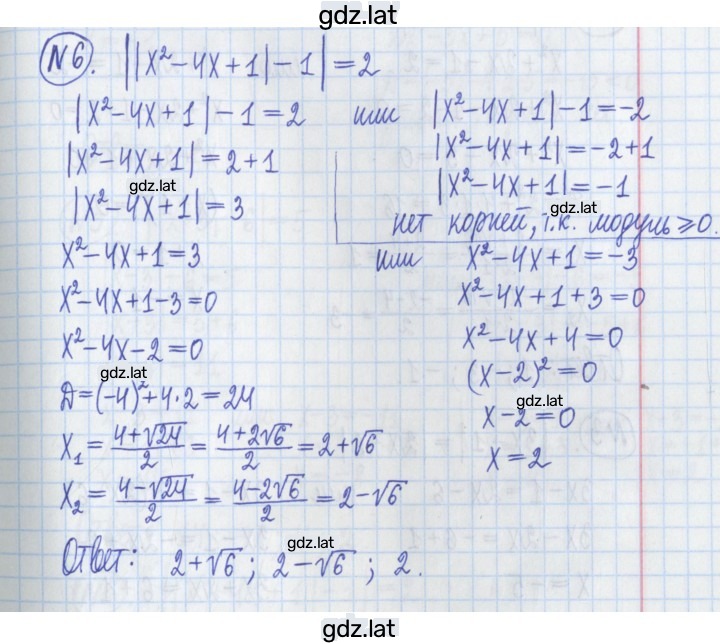 gdz.lat
№6. ||x²-4x+1|-1|=2
|x²-4x+1|-1=2 или |x²-4x+1|-1=-2
|x²-4x+1|=2+1 |x²-4x+1|=-2+1
gdz.lat
|x²-4x+1|=3 |x²-4x+1|=-1
gdz.lat
нет корней, т.к. модуль≥0.
x²-4x+1=3 или x²-4x+1=-3
x²-4x+1-3=0 x²-4x+1+3=0
x²-4x-2=0 x²-4x+4=0
gdz.lat
(x-2)²=0
Д=(-4)²+4·2=24
gdz.lat
x-2=0
x₁=(4+√24)/2=(4+2√6)/2=2+√6
x=2
x₂=(4-√24)/2=(4-2√6)/2=2-√6
gdz.lat
Ответ: 2+√6; 2-√6; 2.
gdz.lat